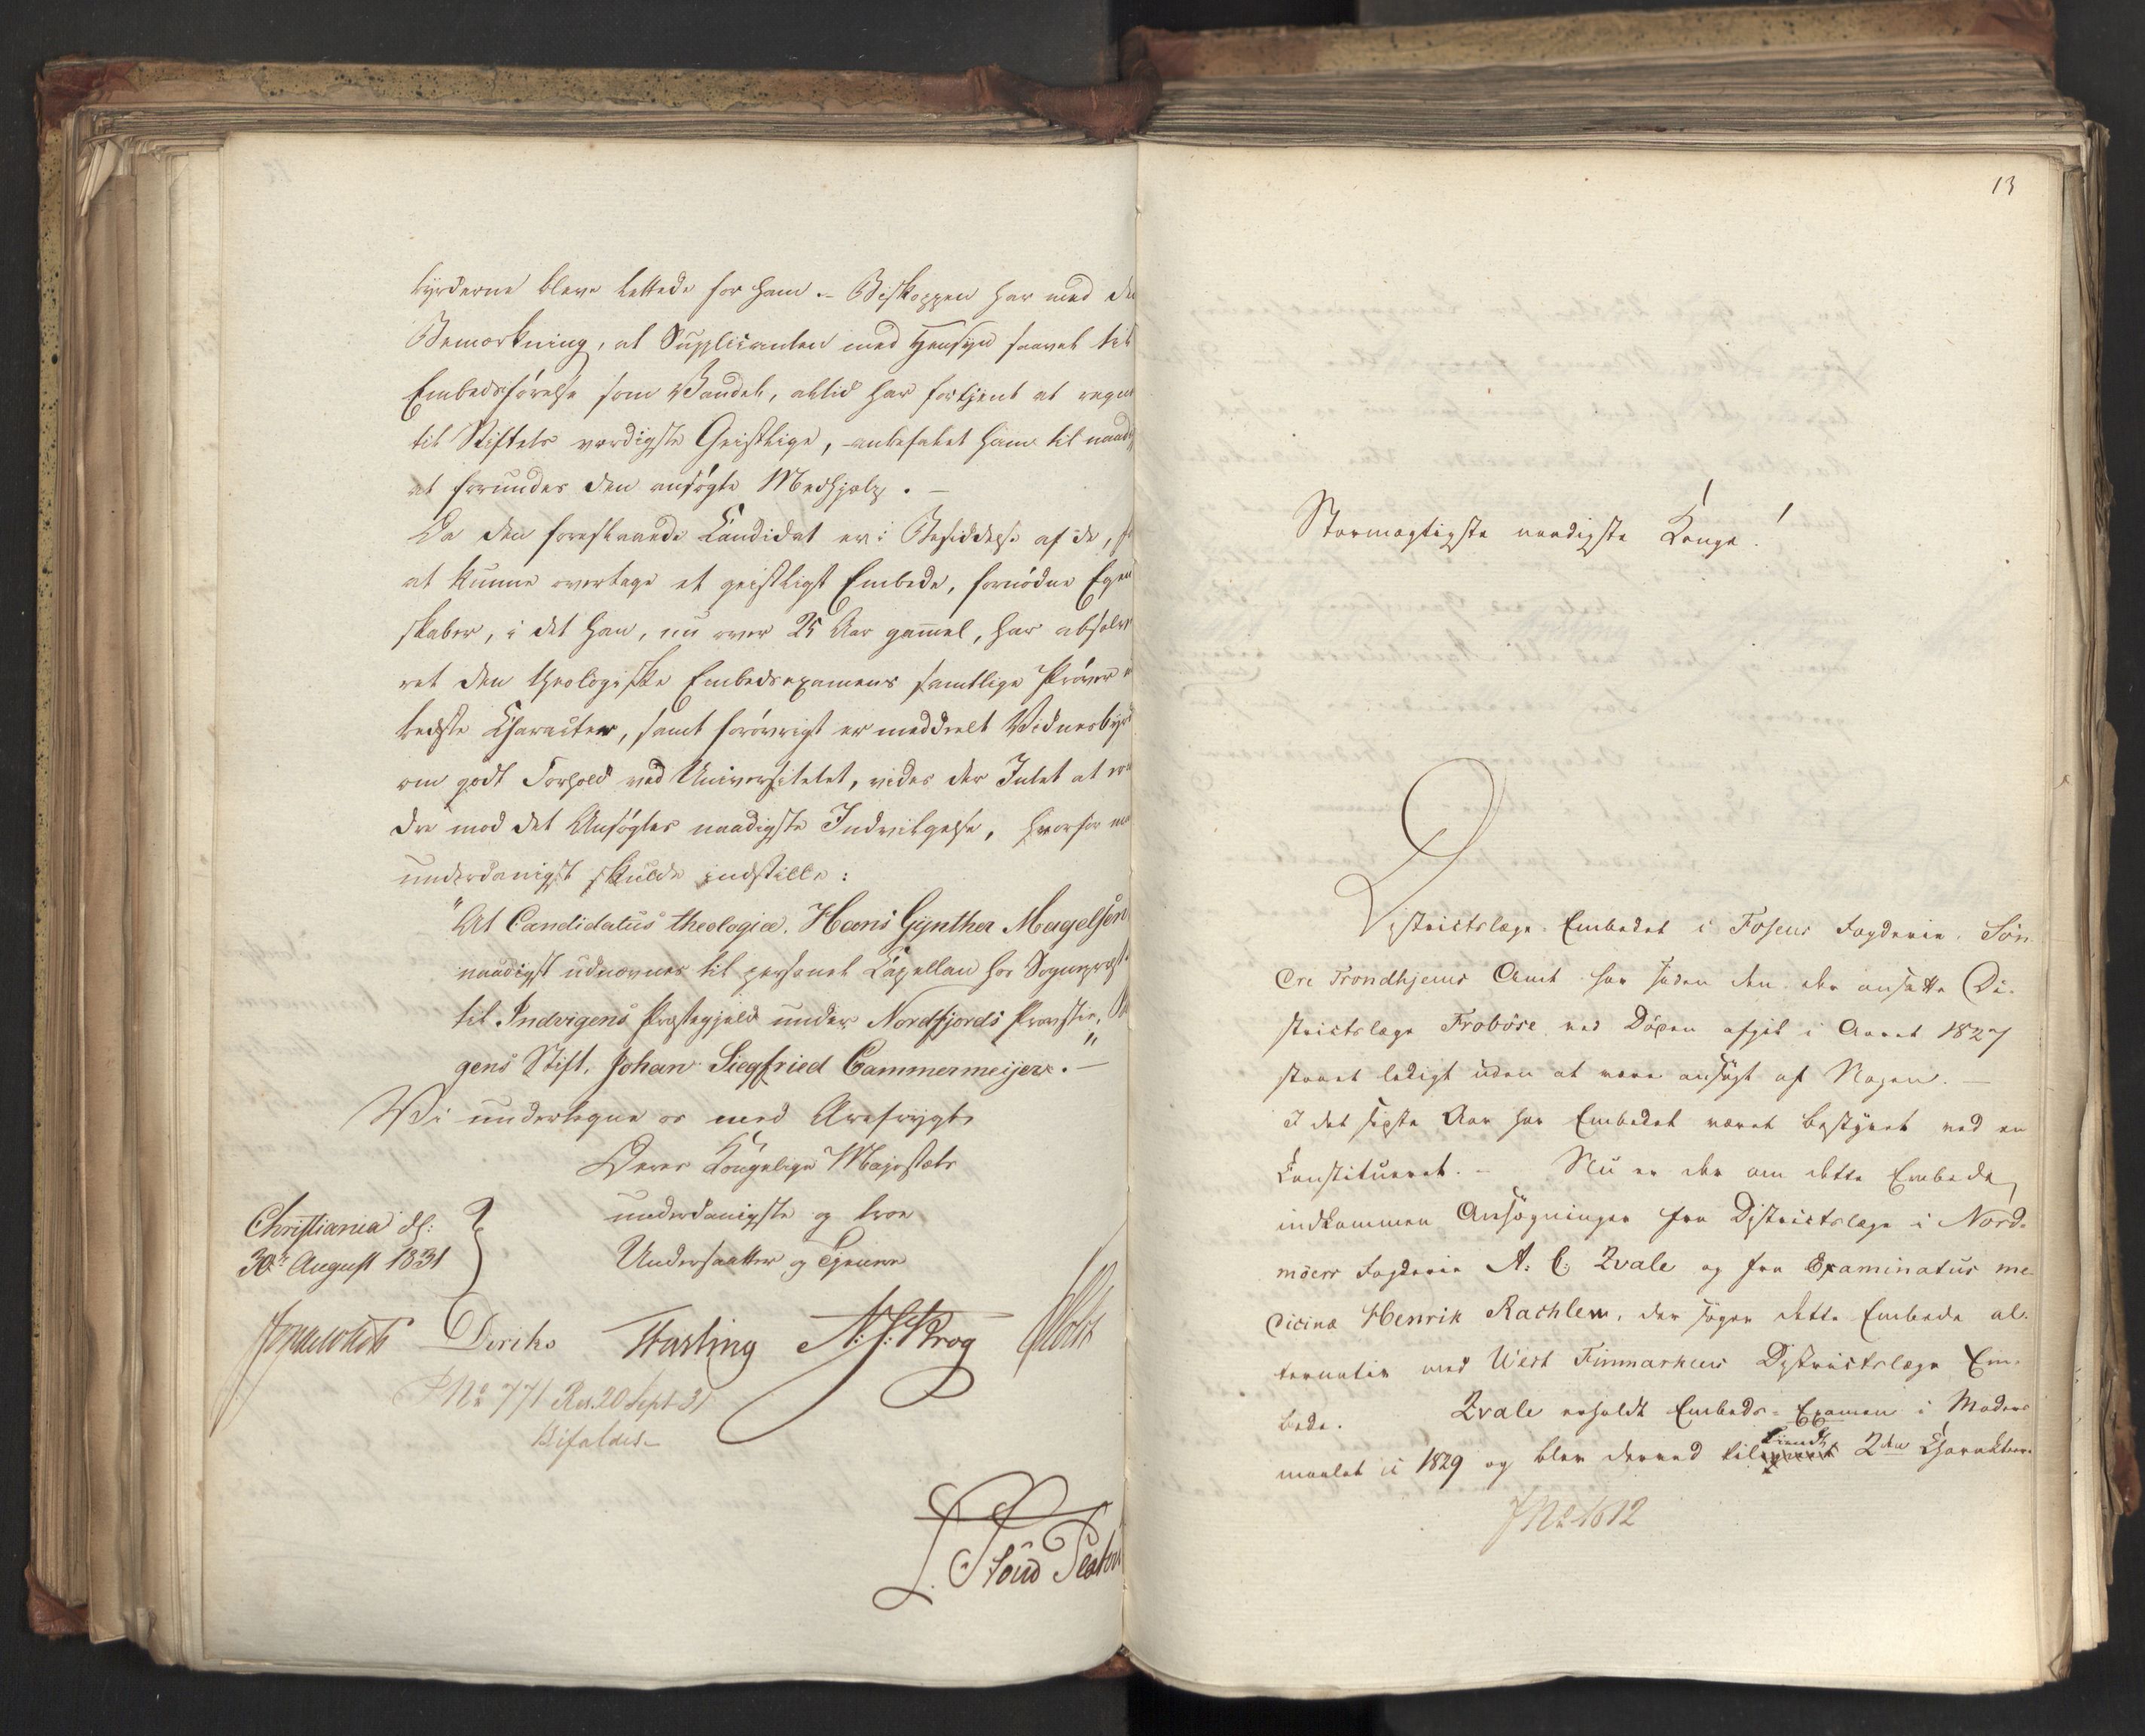 byrderne bleve lettede for ham. – Biskoppen har med den
Bemærkning, at Supplicanten med Hensyn saavel til
Embedsførelse som Vandel, altid har fortjent at regnes
til Stiftets værdigste Geistlige, anbefalet ham til naadigst
at forundes den ansøgte Medhjælp. –
Da den foreslaaede Candidat er i Besiddelse af de, for
at kunne overtage et geistligt Embede, fornødne Egen
skaber, i det han, nu over 25 Aar gammel, har absolve
ret den theologiske Embedsexamens samtlige Prøver
bedste Character, samt forøvrigt er meddeelt Vidnesbyrd
om godt Forhold ved Universitetet, vides der Intet at
dre mod det Ansøgtes naadigste Indvilgelse, hvorfor
underdanigst skulde indstille:
"At Candidatus theologiæ. Hans Gynther Magelsen
naadigst udnævnes til personel Capellan hos Sognepræst
til Indvigens Præstegjeld under Nordfjords Provstie,
gens Stift, Johan Siegfried Cammermeijer." –
Vi undertegne os med Ærefrygt
Deres Kongelige Majestæts
underdanigste og troe
Undersaatter og Tjenere
Christiania d:
30te August 1831
Diriks
N. J. Krog
Holst
No 771 Res. 20 Sept 31
Bifaldes –
13
Stormægtigste naadigste Konge!
Districtslæge-Embedet i Fosens Fogderie, Søn
dre Trondhjems Amt har siden den der ansatte Di-
strictslæge Frobôse ved Døden afgik i Aaret 1827
staaet ledigt uden at være ansøgt af Nogen. –
I det sidste Aar har Embedet været bestyret ved en
Constitueret. – Nu er der om dette Embede,
indkommen Ansøgninger fra Districtslæge i Nord-
møers Fogderie A: C: Zvale og fra Examinatus me-
dicinæ Henrik Rachlew, der søger dette Embede al-
ternativ med West Finmarkens Districtslæge Em-
bede. Zvale erholdt Embeds-Examen i Moders
maalet i 1829 og blev derved tilkiendt 2den Charakteer.
JNo 1612